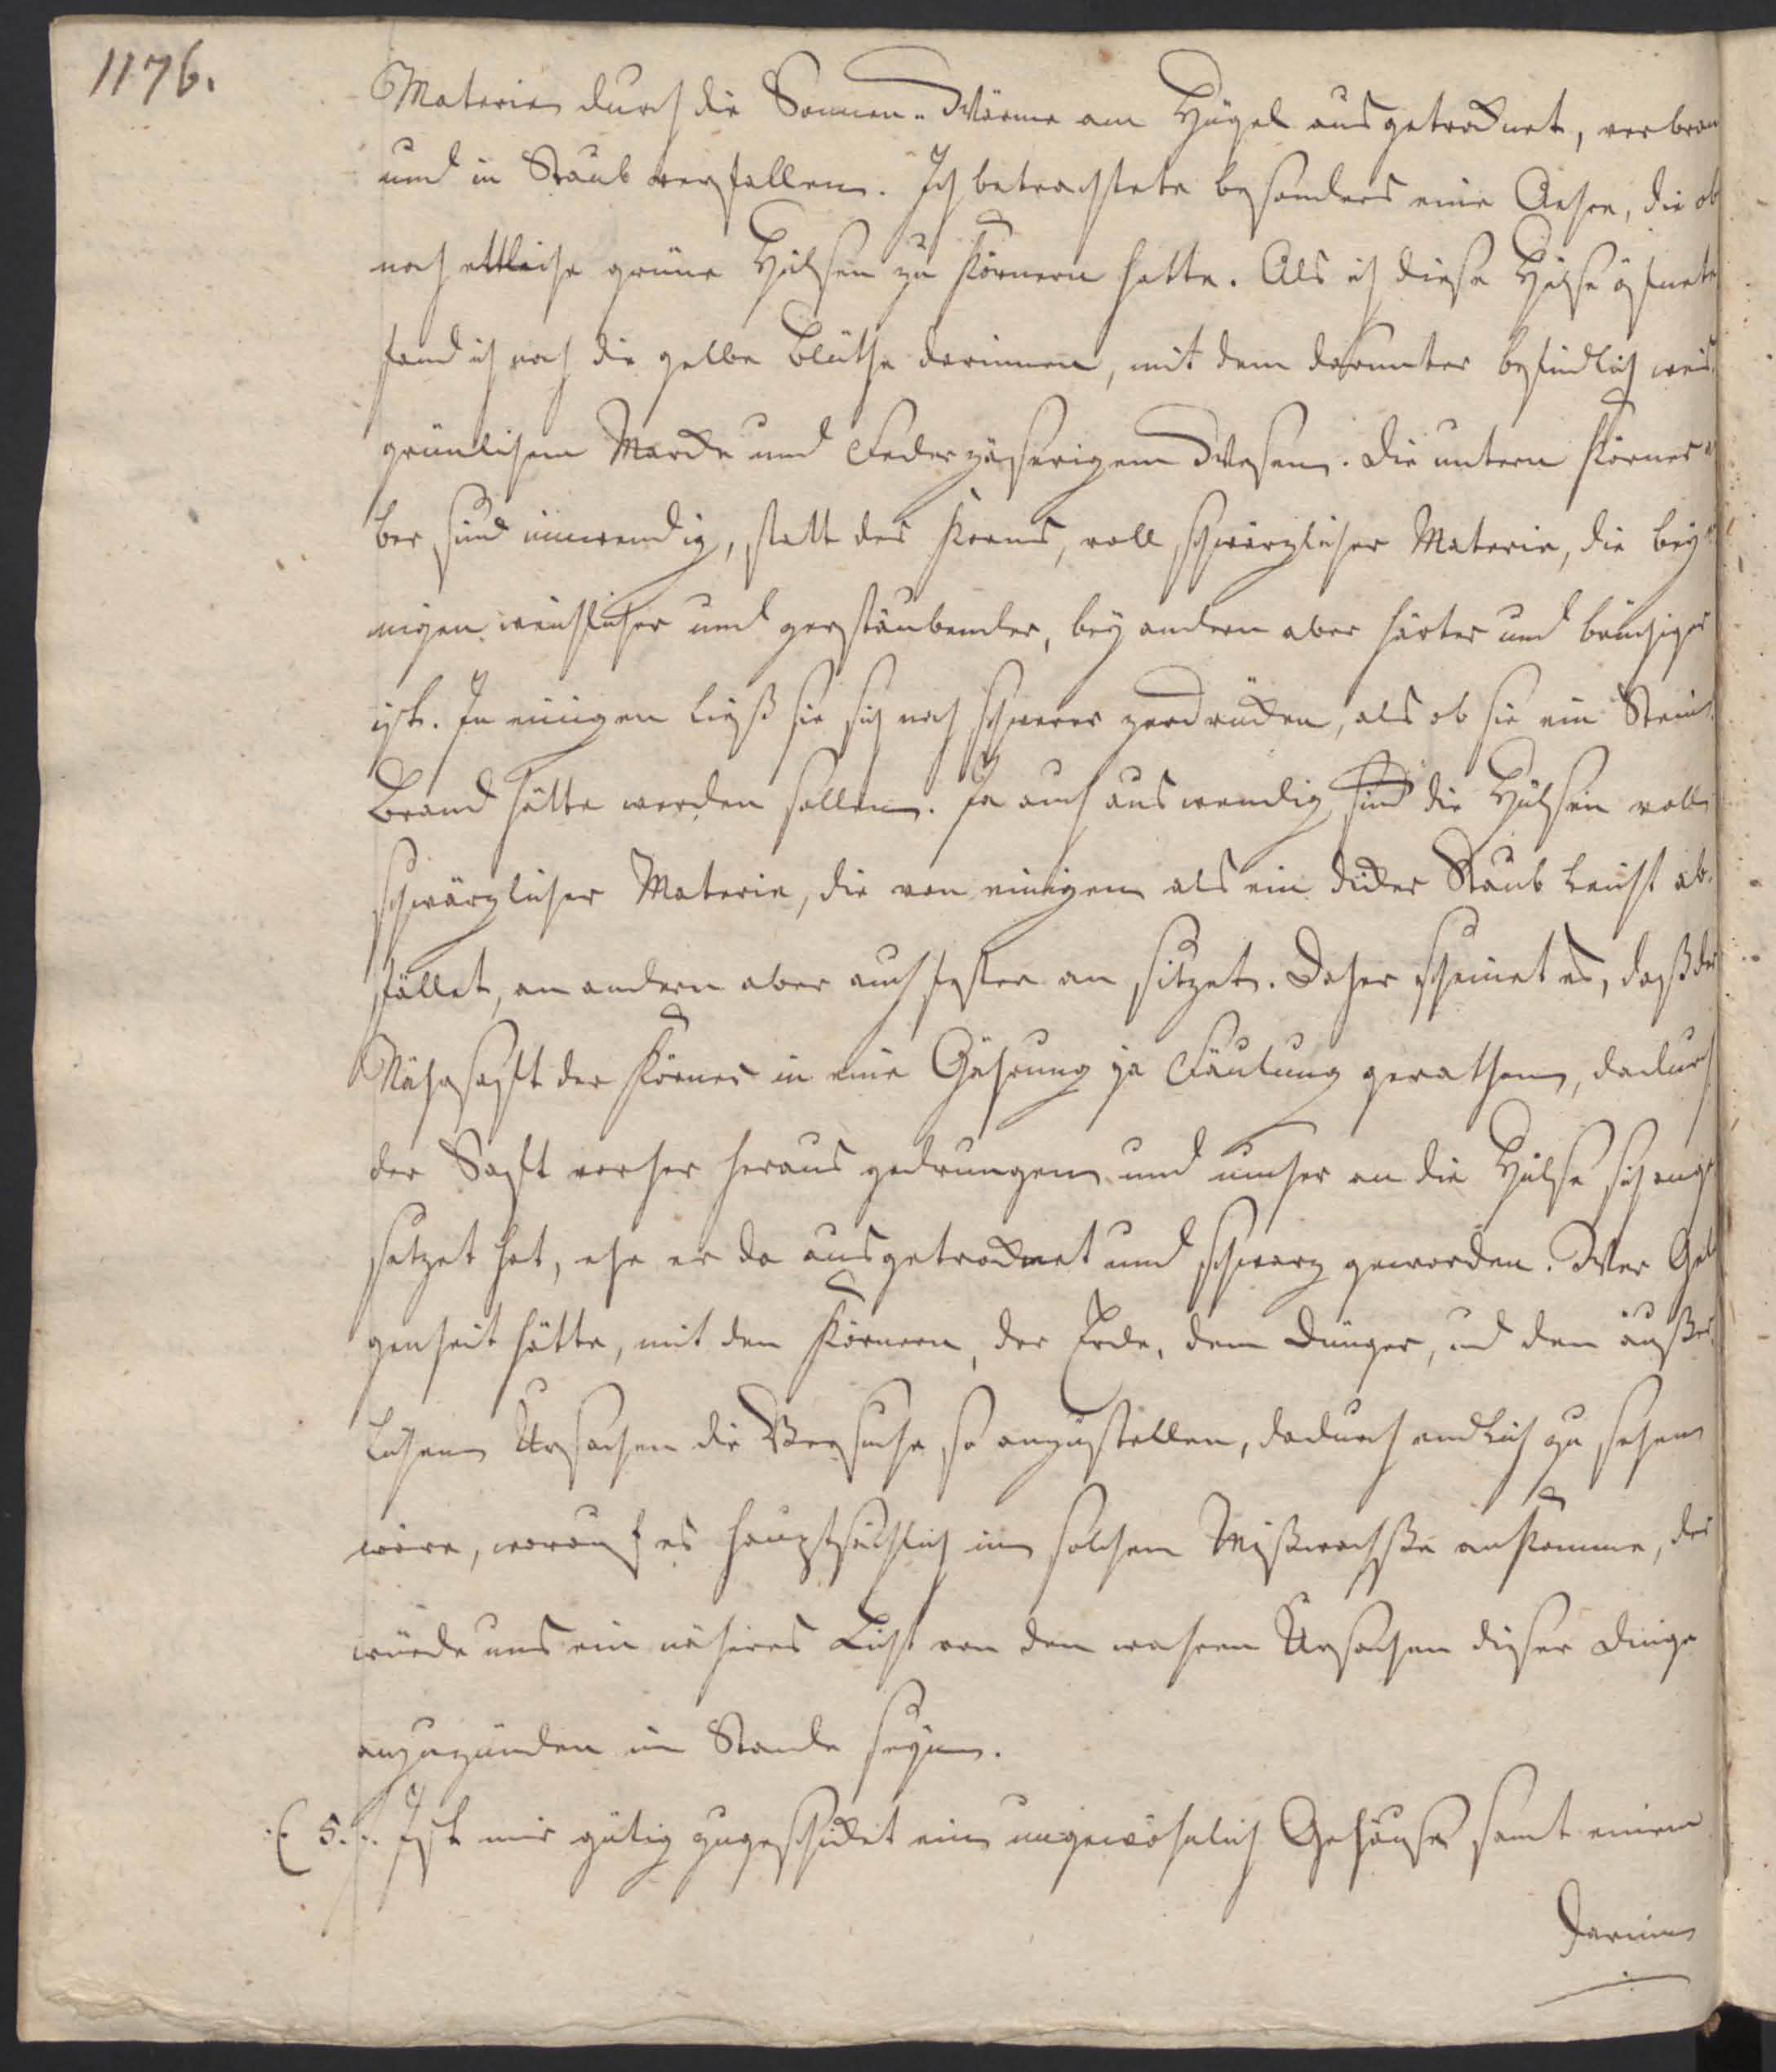 1176.
Materie durch die Sonnen-Wärme am Hügel ausgetrocknet, verbran
und in Staub verfallen. Ich betrachtete besonders eine Aehre, die ob
noch ettleiche grüne Hülsen zu Körnern hatte. Als ich diese Hülse öfnete
fand ich noch die gelbe Blüthe darinnen, mit dem darunter befindlich weis
grünlichem Marcke und Federzäserigem Wesen. Die untern Körner a
ber sind innwendig, statt des Korns, voll schwärzlicher Materie, die bey
nigen weichlicher und zerstäubender, bey andern aber härter und brüchiger
ist. In einigen ließ sie sich noch schwerer zerdrücken, als ob sie ein Stein
Brand hätte werden sollen. Ja auch auswendig sind die Hülsen voll
schwärzlicher Materie, die von einigen als ein dicker Staub leicht ab
fället, an andern aber auch fester an sitzet. Daher scheinet es, daß der
Nährsaft der Körner in eine Gährung ja Fäulung gerathen, dadurch
der Saft vorher heraus gedrungen und umher an die Hülse sich ange
setzet hat, ehe er da ausgetrocknet und schwarz geworden. Wer Gele
genheit hätte, mit den Körnern, der Erde, dem Dünger, und den äußer
lichen Ursachen die Versuche so anzustellen, dadurch endlich zu sehen
wäre, worauf es hauptsächlich im solchem Mißwachße ankomme, der
würde uns ein näheres Licht von den wahren Ursachen dieser Dinge
anzuzünden im Stande seyn.
5. Ist mir gütig zugeschicket ein ungewöhnlich Gehäuse samt einem
darinn